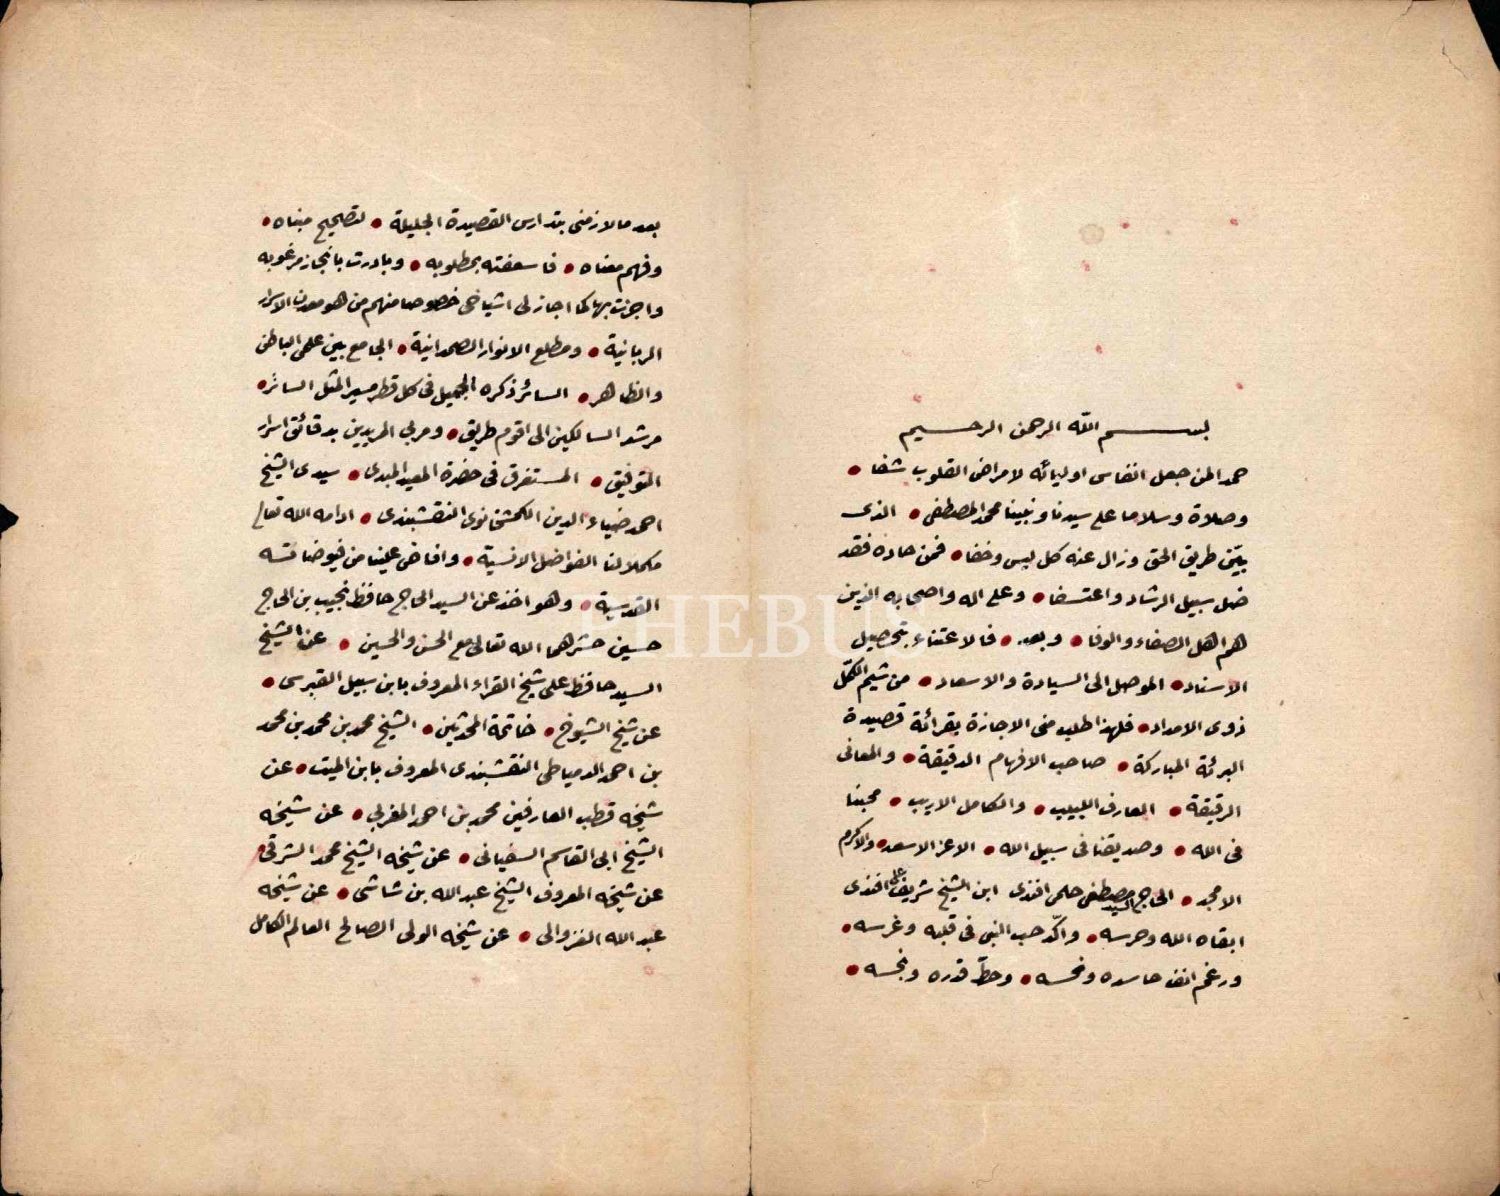 بسم الله الرحمن الرحيم
حمدا لمن جعل انفاس اوليائه لامراض القلوب شفا •
وصلاة وسلاما على سيدنا ونبينا محمد المصطفى • الذى
بيّن طريق الحق وزال عنه كل لبس وخفا • فمن حاده فقد
ضل سبيل الرشاد واعتسفا • وعلى اله واصحابه الذين
هم اهل الصفاء والوفا • وبعد • فالاعتناء بتحصيل
الاسناد • الموصل الى السيادة والاسعاد • من شيم الكمّل
ذوى الامداد • فلهذا طلب منى الاجازة بقرائة قصيدة
البرئة المباركة • صاحب الافهام الدقيقة • والمعانى
الرقيقة • العارف اللبيب • والكامل الاريب • محبنا
فى الله • وصديقنا فى سبيل الله • الاعز الاسعد • والاكرم
الامجد • الحاج السيد مصطفى حلمى افندى ابن الشيخ شريف على افندى
ابقاه الله وحرسه • واكّد حب النبى فى قلبه وغرسه •
ورغم انف حاسده ونحسه • وحطّ قدره ونجسه •
بعد ما لازمنى بتدارس القصيدة الجليلة • لتصحيح مبناه •
وفهم معناه • فاسعفته بمطلوبه • وبادرت بانجاز مرغوبه
واجزت بها كما اجاز لى اشياخى خصوصا منهم من هو معدن الاسرار
الربانية • ومطلع الانوار الصمدانية • الجامع بين علمى الباطن
والظاهر • السائر ذكره الجميل فى كل قطر مسير المثل السائر •
مرشد السالكين الى اقوم طريق • ومربى المريدين بدقائق اسرار
التوفيق • المستغرق فى حضرة المعيد المبدى • سيدى الشيخ
احمد ضياء الدين الكمشخانوى النقشبندى • ادامه الله تعالى
مكملا لنا الفواضل الانسية • وافاض علينا من فيوضاته
القدسية • وهو اخذ عن السيد الحاج حافظ نجيب بن الحاج
حسين حشرهما الله تعالى مع الحسن والحسين • عن الشيخ
السيد حافظ على شيخ القراء المعروف بابن سبيل القبرسى •
عن شيخ الشيوخ • خاتمة المحدثين • الشيخ محمد بن محمد بن محمد
بن احمد الدمياطى النقشبندى المعروف بابن الميت • عن
شيخه قطب العارفين محمد بن احمد المغربى • عن شيخه
الشيخ ابى القاسم السفيانى • عن شيخه الشيخ محمد الشرقى •
عن شيخه المعروف الشيخ عبد الله بن شاشى • عن شيخه
عبد الله الغزوانى • عن شيخه الولى الصالح العالم الكامل
PHEBUS